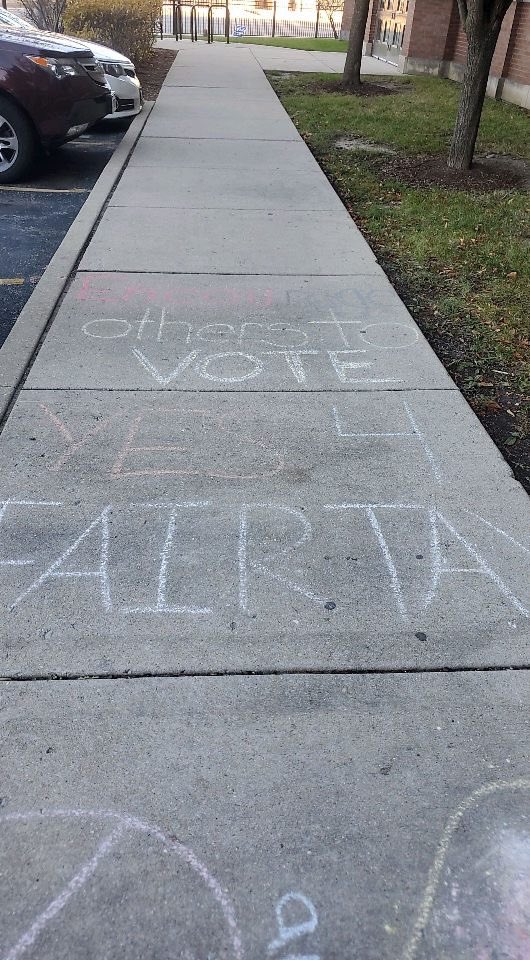 encourage
others to
VOTE
YES 4
FAIRTA
a